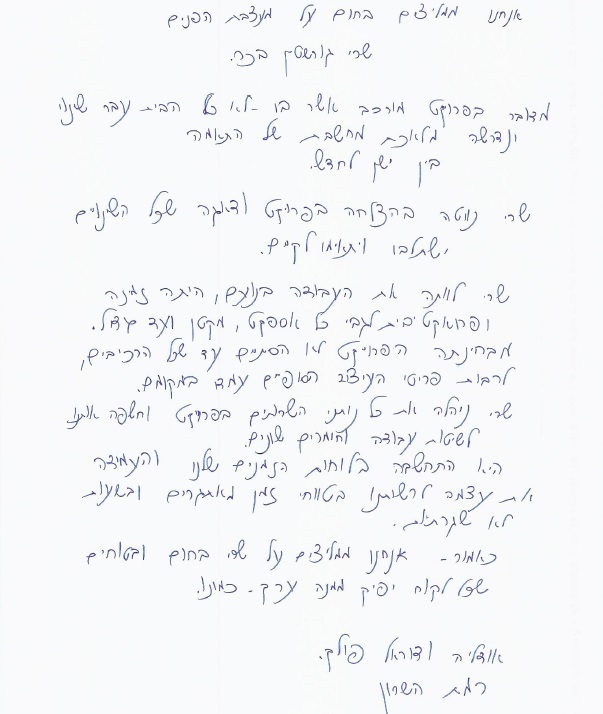 אנחנו ממליצים בחום על מעצבת הפנים
שרי גורשטין בכר.
מדובר בפרויקט מורכב אשר בו - לא כל הבית עבר שינוי
ונדרשה מלאכת מחשבת של התאמה
בין ישן לחדש.
שרי נווטה בהצלחה בפרויקט ודאגה שכל השינויים
ישתלבו ויתאימו לקיים.
שרי לוותה את העבודה בנועם, היתה זמינה
ופרואקטיבית לגבי כל אספקט, מקטן ועד גדול.
מבחינתה הפרויקט לא הסתיים עד שכל הרכיבים,
לרבות פריטי העיצוב הסופיים עמדו במקומם.
שרי ניהלה את כל נותני השרותים בפרויקט וחשפה אותנו
לשיטות עבודה וחומרים שונים.
היא התחשבה בלוחות הזמנים שלנו והעמידה
את עצמה לרשותנו בטווחי זמן מאתגרים ובשעות
לא שגרתיות.
כאמור - אנחנו ממליצים על שרי בחום ובטוחים
שכל לקוח יפיק ממנה ערך - כמונו.
אודליה ודוראל פולק.
רמת השרון